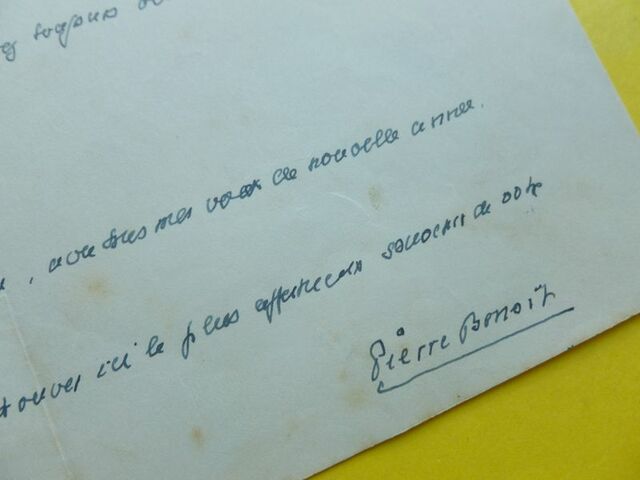 toujours
, avec tous mes vœux de nouvelle année.
trouver ici le plus affectueux souvenir de votre
Pierre Benoit